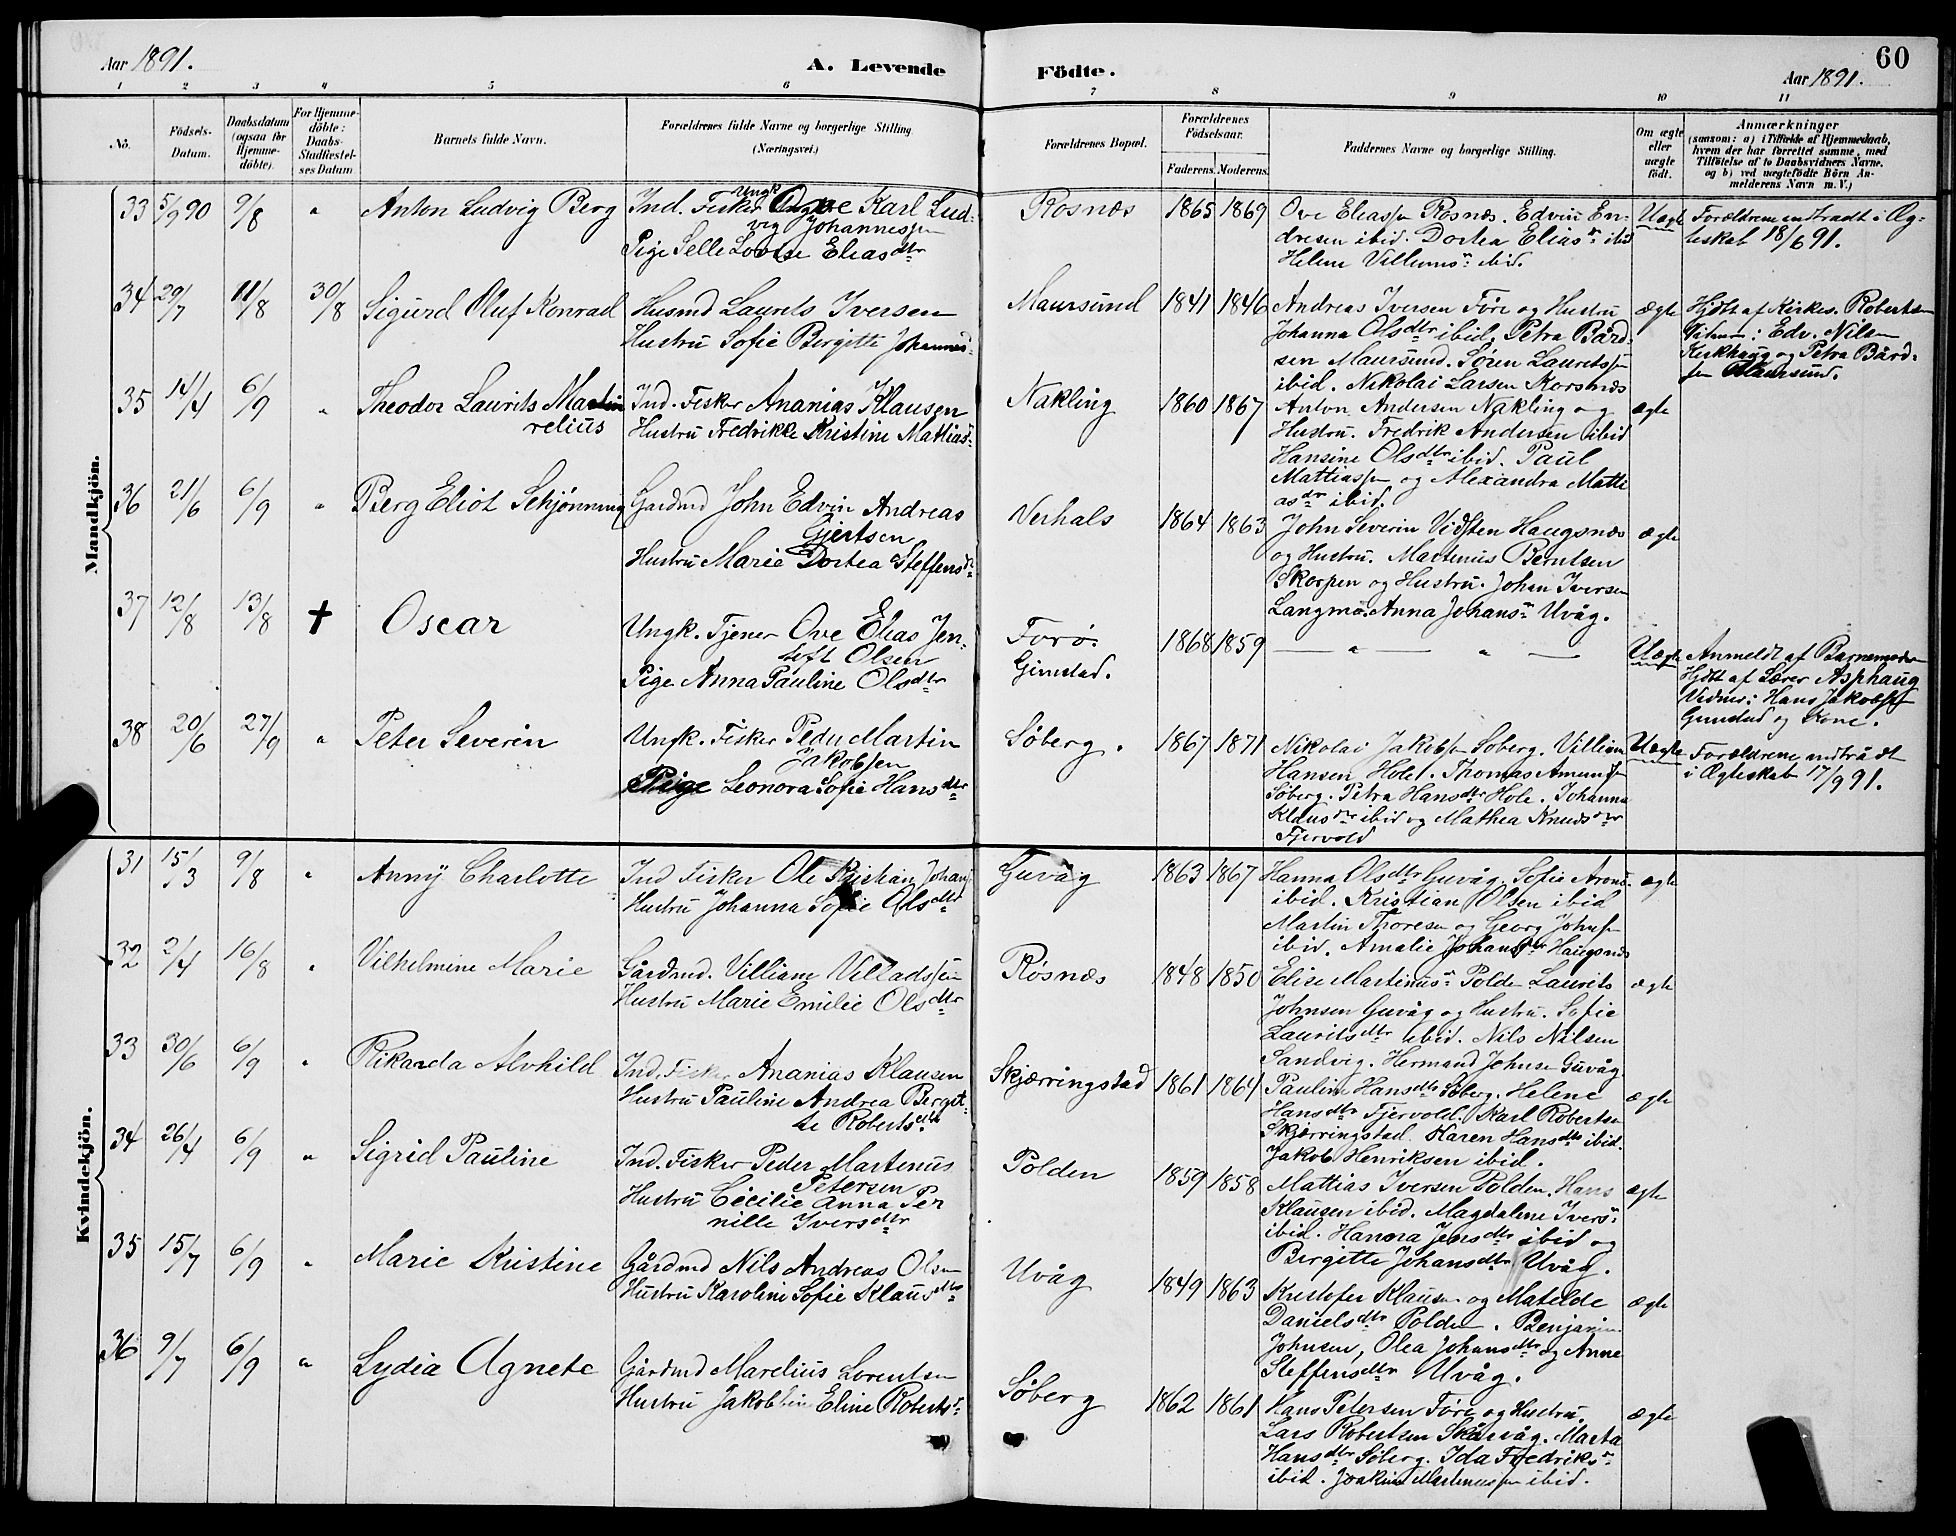 Aar 1891.
A. Levende
Födte.
60
Aar 1891.
1 2 3 4 5 6 7 8 9 10 11
No.
Födsels-
Datum.
Daabsdatum
(ogsaa for
Hjemme-
döbte).
For Hjemme-
döbte:
Daabs-
Stadfæstel-
ses Datum
Barnets fulde Navn.
Forældrenes fulde Navne og borgerlige Stilling.
(Næringsvei.)
Forældrenes Bopæl.
Forældrenes
Födselsaar.
Faderens. Moderens.
Faddernes Navne og borgerlige Stilling.
Om ægte
eller
uægte
födt.
Anmærkninger
(saasom: a) i Tilfælde af Hjemmedaab,
hvem der har forrettet samme, med
Tilföielse af to Daabsvidners Navne,
og b) ved uægtefödte Börn An-
melderens Navn m. V.)
Mandkjön.
33 5/9 90 9/8 " Anton Ludvig Berg
Ind. Fisker Ungk Ove Karl Lud-
vig Johannesen
Pige Selle Lovise Eliasdtr
Rosnæs 1865 1869
Ove Eliassen Rosnæs. Edvin En-
dresen ibid. Dortea Eliasdr ibid
Helene Villumsdr ibid.
Uægte
Forældrene indtraadt i Æg-
teskab 18/6 91.
34 29/7 11/8 30/8 Sigurd Oluf Konrad
Husmd Laurits Iversen
Hustru Sofie Bergitte Johannesdr
Maursund 1841 1846
Andreas Iversen Føre og Hustru
Johanna Olsdtr ibid. Petra Bård-
sen Maursund. Søren Lauritssen
ibid. Nikolai Larsen Korsnæs
ægte
Hjdt af Kirkes. Robertsen
Vidner: Edv. Nilsen
Kirkhaug og Petra Bård-
sen Maursund.
35 14/4 6/9 " Theodor Laurits Mar
relius
Ind. Fisker Ananias Klausen
Hustru Fredrikke Kristine Mathiasdr
Nakling 1860 1867
Anton Andersen Nakling og
Hustru. Fredrik Andersen ibid
Hansine Olsdtr ibid. Paul
Mattiassen og Alexandra Matti
asdr ibid.
ægte
36 21/6 6/9 " Berg Eliot Schjønning
Gardmd John Edvin Andreas
Gjertsen
Hustru Marie Dortea Steffensdr
Verhals 1864 1863
John Severin Vidsten Haugsnæs
og Hustru. Martinus Berntsen
Skorpen og Hustru. Johan Iversen
Langmo. Anna Johansdr Uvåg.
ægte
37 12/8 13/8 ✝ Oscar
Ungk. Tjener Ove Elias Jen-
toft Olsen
Pige Anna Pauline Olsdtr
Forø.
Gimstad.
1868 1859
— " — " —
Uægte
Anmeldt af Barnemoder
Hjdt af Lærer Asphaug
Vidner: Hans Jakobsen
Gimstad og Kone.
38 20/6 27/9 " Peter Severin
Ungk. Fisker Peder Martin
Jakobsen
Pige Leonora Sofie Hansdtr
Søberg. 1867 1871
Nikolai Jakobsen Søberg. Villiam
Hansen Hole. Thomas Amundsen
Søberg. Petra Hansdtr Hole. Johanna
Klausdtr ibid og Mathea Knudsdtr
Fjervold
Uægte
Forældrene indtrådt
i Ægteskab 17/9 91.
Kvindekjön.
31 15/3 9/8 " Anny Charlotte
Ind Fisker Ole Kristian Johans
Hustru Johanna Sofie Olsdtr
Guvåg 1863 1867
Hanna Olsdtr Guvåg. Sofie Aronsdr
ibid. Kristian Olsen ibid
Martin Thoresen og Georg Johnsen
ibid. Amalie Johansdtr Haugsnæs
ægte
32 2/4 16/8 " Vilhelmine Marie
Gårdmd. Villiam Villadssen
Hustru Marie Emilie Olsdtr
Røsnæs 1848 1850
Elise Martinusdr Polden Laurits
Johnsen Guvåg og Hustru. Sofie
Lauritsdtr ibid. Nils Nilsen
Sandvig. Hermand Johnsen Guvåg
ægte
33 30/6 6/9 " Rikarda Alvhild
Ind. Fisker Ananias Klausen
Hustru Pauline Andrea Bergit-
te Robertsdtr
Skjærringstad 1861 1864
Pauline Hansdtr Søberg. Helene
Hansdtr Fjervold. Karl Robertsen
Skjærringstad. Karen Hansdtr ibid.
Jakob Henriksen ibid.
ægte
34 26/4 6/9 " Sigrid Pauline
Ind. Fisker Peder Martenus
Petersen
Hustru Cecilie Anna Per
nille Iversdtr
Polden 1859 1858
Mattias Iversen Polden. Hans
Klausen ibid. Magdalene Iversdr
ibid. Hanna Jensdtr ibid og
Bergitte Johansdtr Uvåg.
ægte
35 15/7 6/9 " Marie Kristine
Gårdmd Nils Andreas Olsen
Hustru Karoline Sofie Klausdtr
Uvåg 1849 1863
Kristofer Klausen og Matilde
Danielsdtr Polden. Benjamin
Johnsen, Olea Johansdtr og Anne
Steffensdtr Uvåg.
ægte
36 9/7 6/9 " Lydia Agnete
Gårdmd Marelius Lorentsen
Hustru Jakobbine Eline Robertsdr
Søberg 1862 1861
Hans Petersen Føre og Hustru.
Lars Robertsen Skårvåg. Marta
Hansdtr Søberg. Ida Fredriksdr
ibid. Joakim Martenussen ibid.
ægte